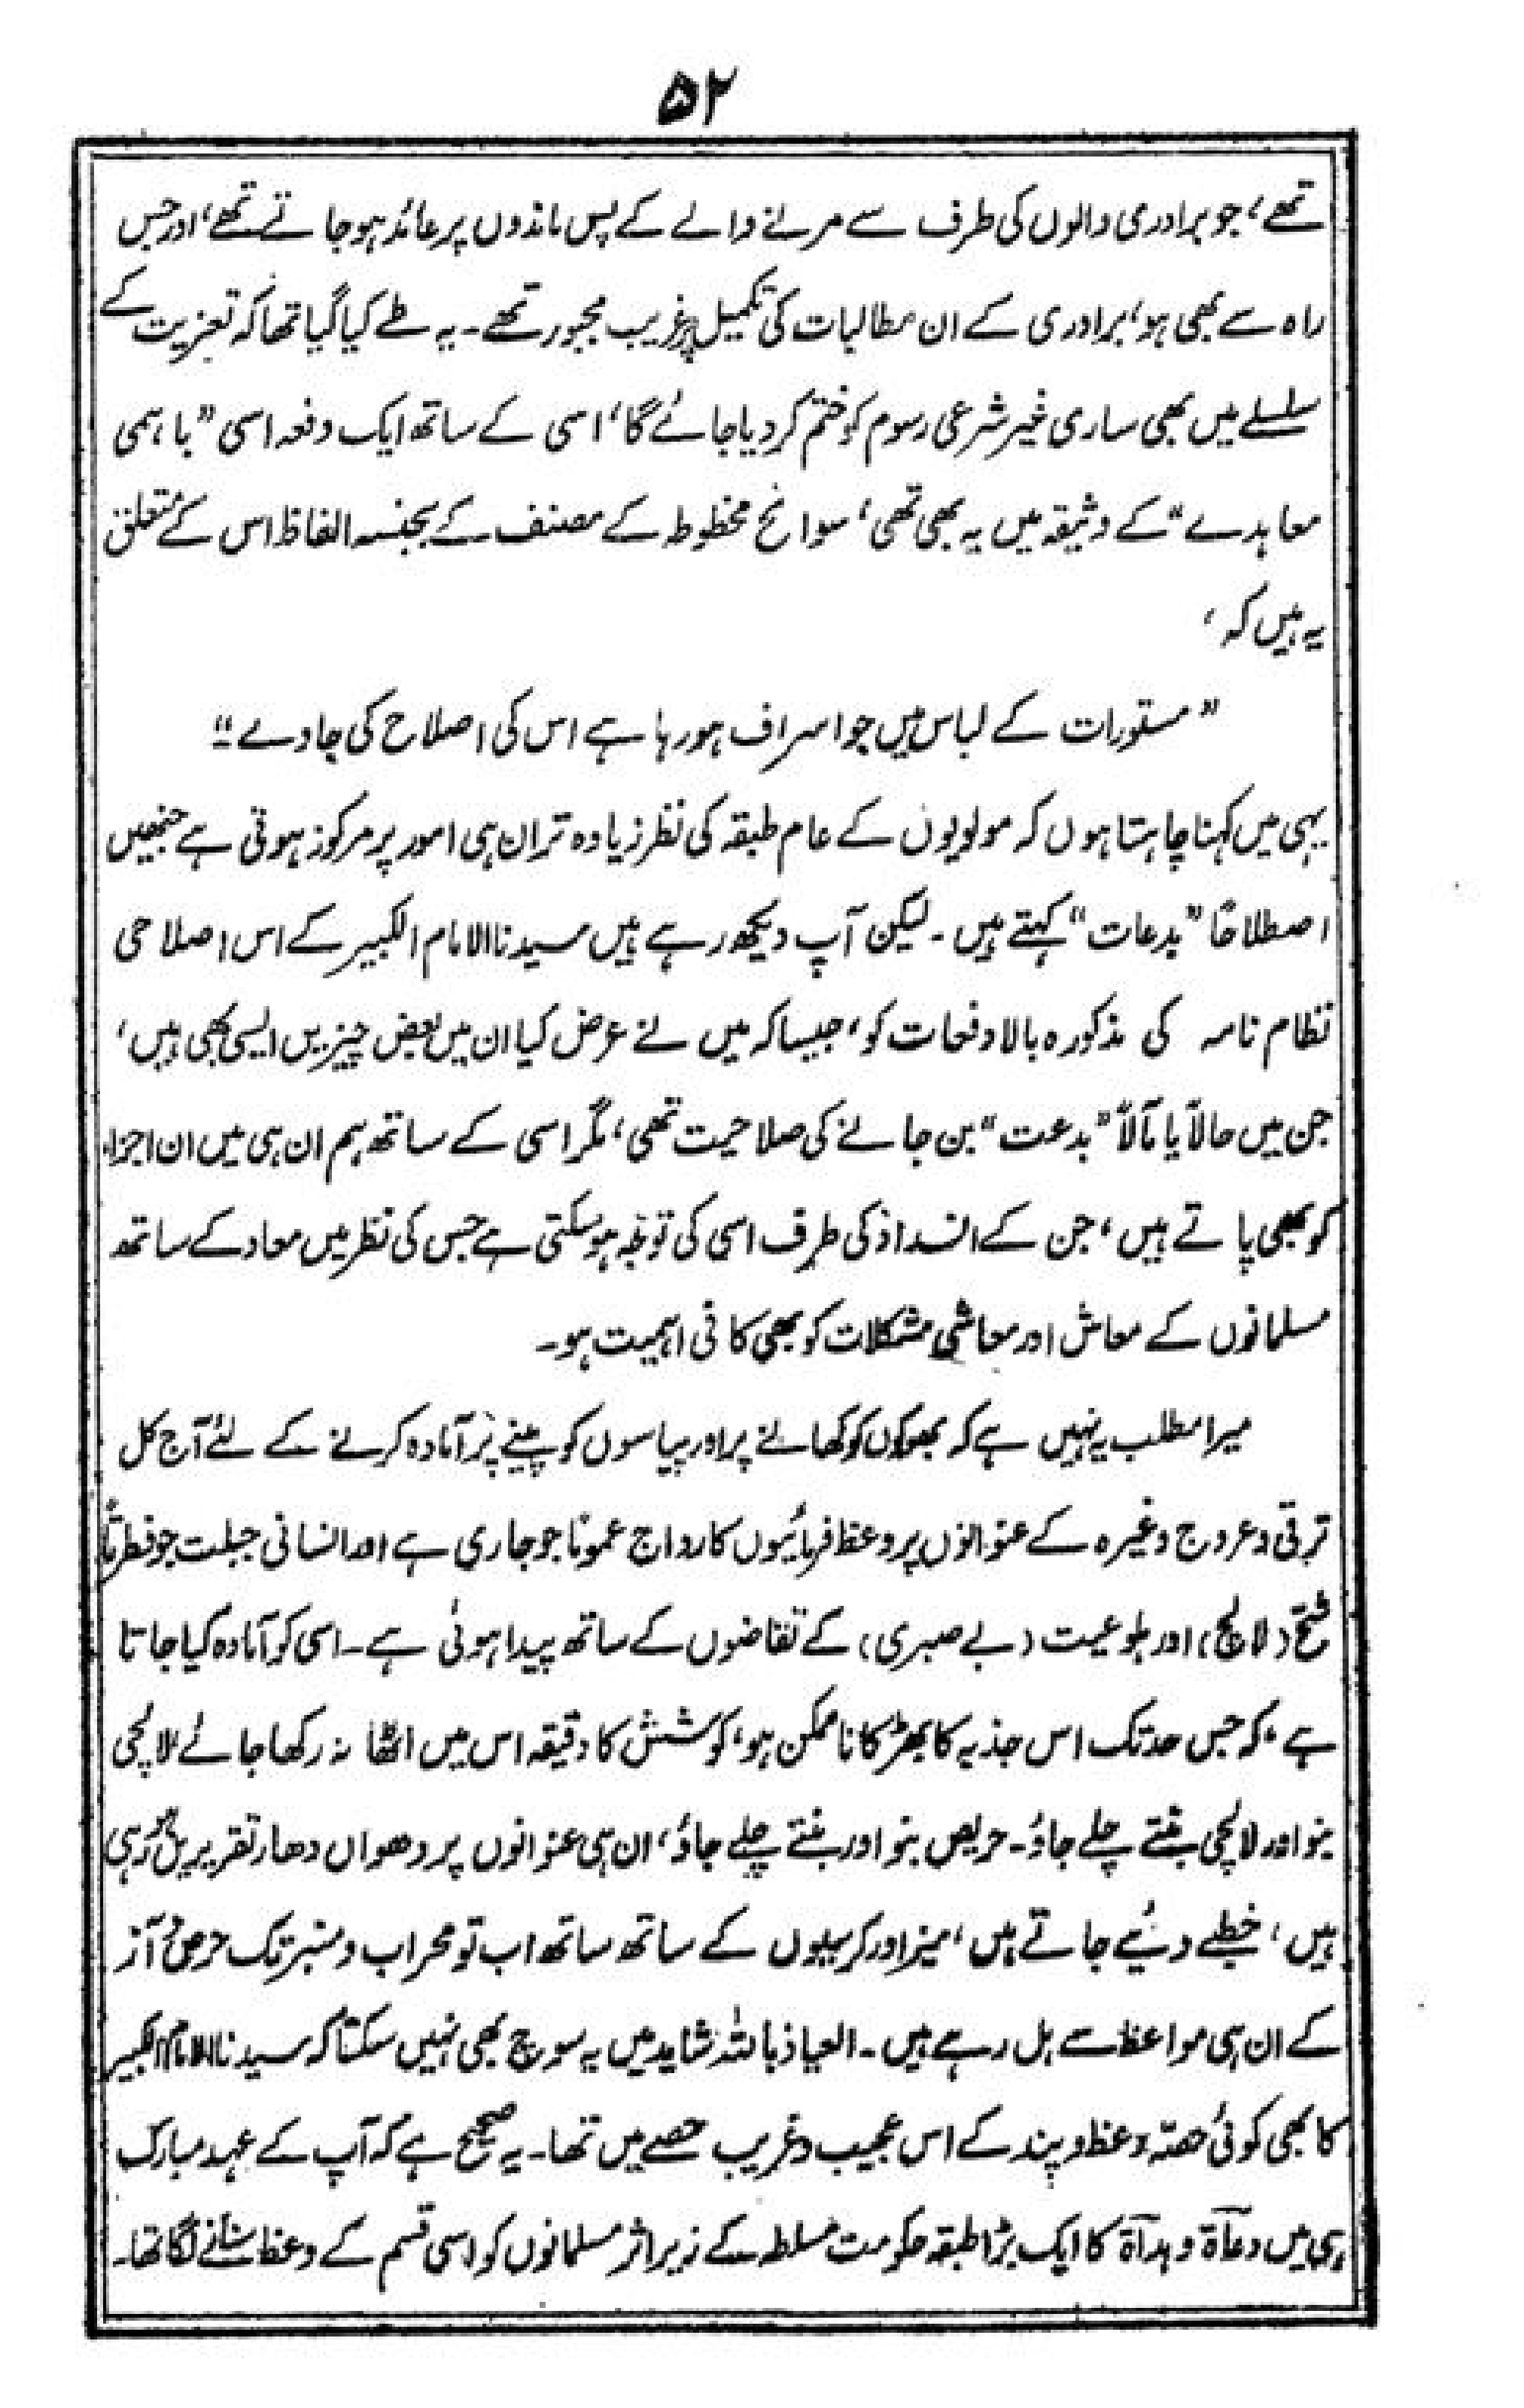 ۵۲
تھے، جو برادری والوں کی طرف سے مرنے والے کے پس ماندوں پر عائد ہوجاتے تھے، اور جس
راہ سے بھی ہو، برادری کے ان مطالبات کی تکمیل پر غریب مجبور تھے۔ یہ طے کیا گیا تھا کہ تعزیت کے
سلسلے میں بھی ساری غیر شرعی رسوم کو ختم کردیا جائے گا، اسی کے ساتھ ایک دفعہ اسی ”باہمی
معاہدے“ کے وثیقہ میں یہ بھی تھی، سوانح مخطوطہ کے مصنف کے بجنسہ الفاظ اس کے متعلق
یہ ہیں کہ،
”مستورات کے لباس میں جو اسراف ہورہا ہے اس کی اصلاح کی جاوے“
یہی میں کہنا چاہتا ہوں کہ مولویوں کے عام طبقہ کی نظر زیادہ تر ان ہی امور پر مرکوز ہوتی ہے جنھیں
اصطلاحًا ”بدعات“ کہتے ہیں۔ لیکن آپ دیکھ رہے ہیں سیدنا الامام الکبیر کے اس اصلاحی
نظام نامہ کی مذکورہ بالا دفعات کو، جیسا کہ میں نے عرض کیا ان میں بعض چیزیں ایسی بھی ہیں،
جن میں حالاً یا مآلاً ”بدعت“ بن جانے کی صلاحیت تھی، مگر اسی کے ساتھ ہم ان ہی میں ان اجزاء
کو بھی پاتے ہیں، جن کے انسداد کی طرف اسی کی توجہ ہوسکتی ہے جس کی نظر میں معاد کے ساتھ
مسلمانوں کے معاش اور معاشی مشکلات کو بھی کافی اہمیت ہو۔
میرا مطلب یہ نہیں ہے کہ بھوکوں کو کھانے پر اور پیاسوں کو پینے پر آمادہ کرنے کے لئے آج کل
ترقی و عروج وغیرہ کے عنوانوں پر وعظ فرمائیوں کا رواج عمومًا جو جاری ہے اور انسانی جبلت جو فطرتًا
شحّ (لالچ) اور ہلوعیت (بے صبری) کے تقاضوں کے ساتھ پیدا ہوئی ہے۔ اسی کو آمادہ کیا جاتا
ہے، کہ جس حد تک اس جذبہ کا بھڑکانا ممکن ہو، کوشش کا دقیقہ اس میں اٹھا نہ رکھا جائے لالچی
بنو اور لالچی بنتے چلے جاؤ۔ حریص بنو اور بنتے چلے جاؤ، ان ہی عنوانوں پر دھواں دھار تقریریں ہورہی
ہیں، خطبے دئیے جاتے ہیں، میز اور کرسیوں کے ساتھ ساتھ اب تو محراب و منبر تک حرص و آز
کے ان ہی مواعظ سے ہل رہے ہیں۔ العیاذ باللہ شاید میں یہ سوچ بھی نہیں سکتا کہ سیدنا الامام الکبیر
کا بھی کوئی حصّہ وعظ و پند کے اس عجیب و غریب حصے میں تھا۔ یہ صحیح ہے کہ آپ کے عہد مبارک
ہی میں دعاۃ و ہداۃ کا ایک بڑا طبقہ حکومت مسلطہ کے زیر اثر مسلمانوں کو اسی قسم کے وعظ سنانے لگا تھا۔